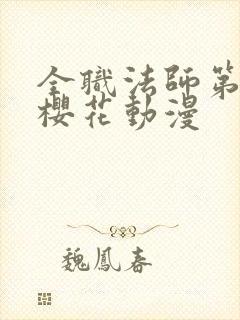 全職法師第
櫻花動漫
魏鳳春